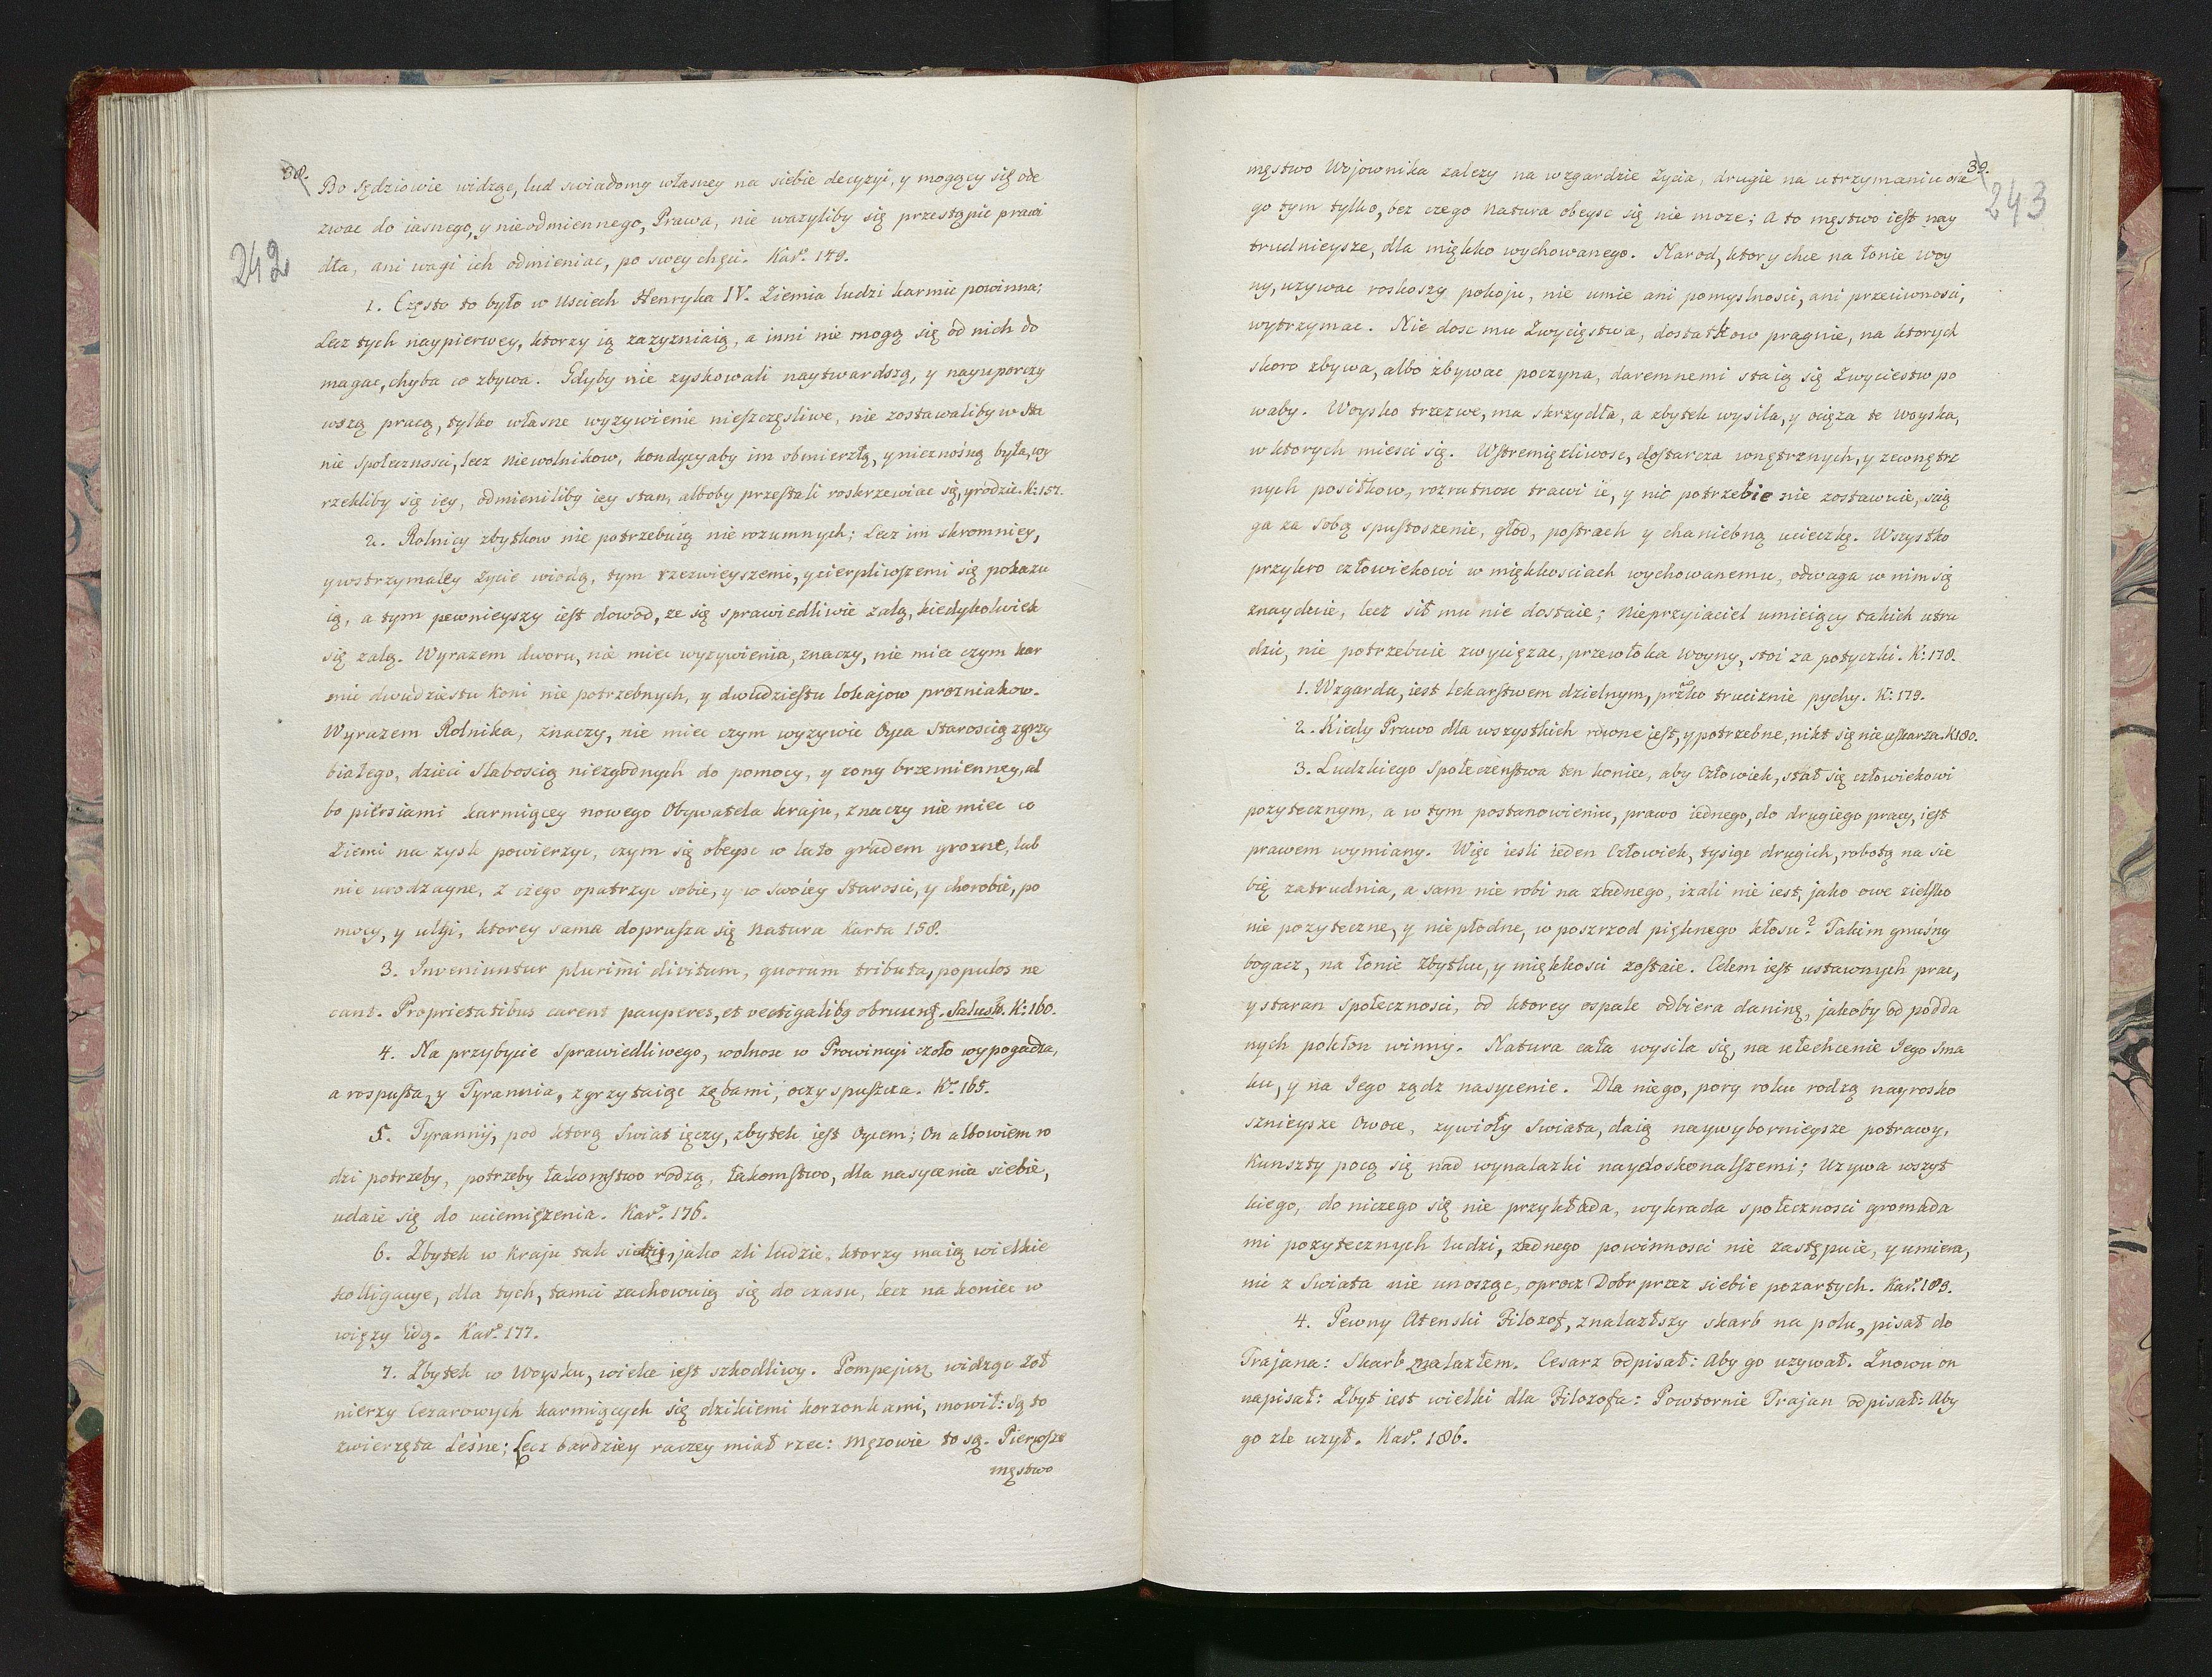 38.
242
Bo Sędziowie widząc, lud swiadomy własney na siebie decyzyi, y mogący się ode
zwac do iasnego, y nieodmiennego, Prawa, nie wazyliby się przestąpic prawi
dła, ani wagi ich odmieniac, po swey chęci. Kar.ᵃ 149.
1. Często to było w Usciech Henryka IV. Ziemia ludzi karmic powinna;
Lecz tych naypierwey, ktorzy ią zazyzniaią, a inni nie mogą się od nich do
magac, chyba co zbywa. Gdyby nie zyskowali naytwardszą, y nayuporczy
wszą pracą, tylko własne wyzywienie nieszczęsliwe, nie zostawaliby w Sta
nie społecznosci, lecz Niewolnikow, kondycyaby im obmierzłą, y nieznośną była, wy
rzekliby się iey, odmieniliby iey stan, alboby przestali roskrzewiac się, y rodzic. K: 157.
2. Rolnicy zbytkow nie potrzebuią nie rozumnych; Lecz im skromniey,
y wstrzymaley zycie wiodą, tym rzezwieyszemi, y cierpliwszemi się pokazu
ią, a tym pewnieyszy iest dowod, ze się sprawiedliwie zalą, kiedykolwiek
się zalą. Wyrazem dworu, nie miec wyzywienia, znaczy, nie miec czym kar
mic dwudziestu Koni nie potrzebnych, y dwudziestu lokajow prozniakow.
Wyrazem Rolnika, znaczy, nie miec czym wyzywic Oyca Starością zgrzy
białego, dzieci Słaboscią niezgodnych do pomocy, y zony brzemienney, al
bo piersiami karmiącey nowego Obywatela kraju, znaczy nie miec co
Ziemi na zysk powierzyc, czym się obeysc w lato gradem grozne, lub
nie urodzayne, z czego opatrzyc sobie, y w swoiey Starosci, y chorobie, po
mocy, y ulgi, ktorey sama doprasza się Natura Karta 158.
3. Inveniuntur plurimi divitum, quorum tributa, populos ne
cant. Proprietatibus carent pauperes, et vectigalibꝫ obruunt. Salust. K: 160.
4. Na przybycie Sprawiedliwego, wolnosc w Prowincyi czoło wypogadza,
a rospusta, y Tyrannia, zgrzytaiąc zębami, oczy spuszcza. K.ᵃ 165.
5. Tyrannij, pod ktorą Swiat ięczy, zbytek iest Oycem; On albowiem ro
dzi potrzeby, potrzeby łakomstwo rodzą, łakomstwo, dla nasycenia siebie,
udaie się do uciemiężenia. Kar.ᵃ 176.
6. Zbytek w Kraju tak siedzi, jako zli ludzie, ktorzy maią wielkie
kolligacye, dla tych, tamci zachowuią się do czasu, lecz na koniec w
więzy idą. Kar.ᵃ 177.
7. Zbytek w Woysku, wielce iest szkodliwy. Pompejusz widząc Zoł
nierzy Cezarowych karmiących się dzikiemi korzonkami, mowił: Są to
zwierzęta Leśne; Lecz bardziey raczey miał rzec: Męzowie to są. Pierwsze
męstwo
39.
243
męstwo Wojownika zalezy na wzgardzie Zycia, drugie na utrzymaniu one
go tym tylko, bez czego Natura obeysc się nie moze; A to męstwo iest nay
trudnieysze, dla miękko wychowanego. Narod, ktory chce na łonie woy
ny, uzywac roskoszy pokoju, nie umie ani pomyslnosci, ani przeciwnosci,
wytrzymac. Nie dosc mu Zwycięstwa, dostatkow pragnie, na ktorych
skoro zbywa, albo zbywac poczyna, daremnemi staią się Zwyciestw po
waby. Woysko trzezwe, ma skrzydła, a zbytek wysila, y ocięza te Woyska,
w ktorych miesci się. Wstremięzliwosc, dostarcza wnętrznych, y zewnętrz
nych posiłkow, rozrutnosc trawi ie, y nic potrzebie nie zostawuie, scią
ga za Sobą spustoszenie, głod, postrach y chaniebną ucieczkę. Wszystko
przykro człowiekowi w miękkosciach wychowanemu, odwaga w nim się
znayduie, lecz sił mu nie dostaie; Nieprzyiaciel umieiący takich utru
dzic, nie potrzebuie zwycięzac, przewłoka Woyny, stoi za potyczki. K: 178.
1. Wzgarda, iest lekarstwem dzielnym, przćko truciznie pychy. K: 179.
2. Kiedy Prawo dla wszystkich rowne iest, y potrzebne, nikt się nie uskarza. K 180.
3. Ludzkiego Społeczenstwa ten koniec, aby Człowiek, stał się człowiekowi
pozytecznym, a w tym postanowieniu, prawo iednego, do drugiego pracy, iest
prawem wymiany. Więc iesli ieden Człowiek, tysiąc drugich, robotą na sie
bię zatrudnia, a sam nie robi na zadnego, izali nie iest, jako owe zielsko
nie pozyteczne, y nie płodne, w poszrzod pięknego kłosu? Takim gnuśny
bogacz, na łonie Zbytku, y miękkosci zostaie. Celem iest ustawnych prac,
y staran Społecznosci, od ktorey ospale odbiera daninę, jakoby od podda
nych pokłon winny. Natura cała wysila się, na utechcenie Jego Sma
ku, y na Jego ządz nasycenie. Dla niego, pory roku rodzą nayrosko
sznieysze Owoce, zywioły Swiata, daią naywybornieysze potrawy,
Kunszty pocą się nad wynalazki naydoskonalszemi; Uzywa wszyt
kiego, do niczego się nie przykłada, wykrada społecznosci gromada
mi pozytecznych ludzi, zadnego powinnosci nie zastępuie, y umiera,
nic z Swiata nie unosząc, oprocz Dobr przez siebie pozartych. Kar.ᵃ 183.
4. Pewny Atenski Filozof, znalazłszy skarb na polu, pisał do
Trajana: Skarb znalazłem. Cesarz odpisał: Aby go uzywał. Znowu on
napisał: Zbyt iest wielki dla Filozofa: Powtornie Trajan odpisał: Aby
go zle uzył. Kar.ᵃ 186.